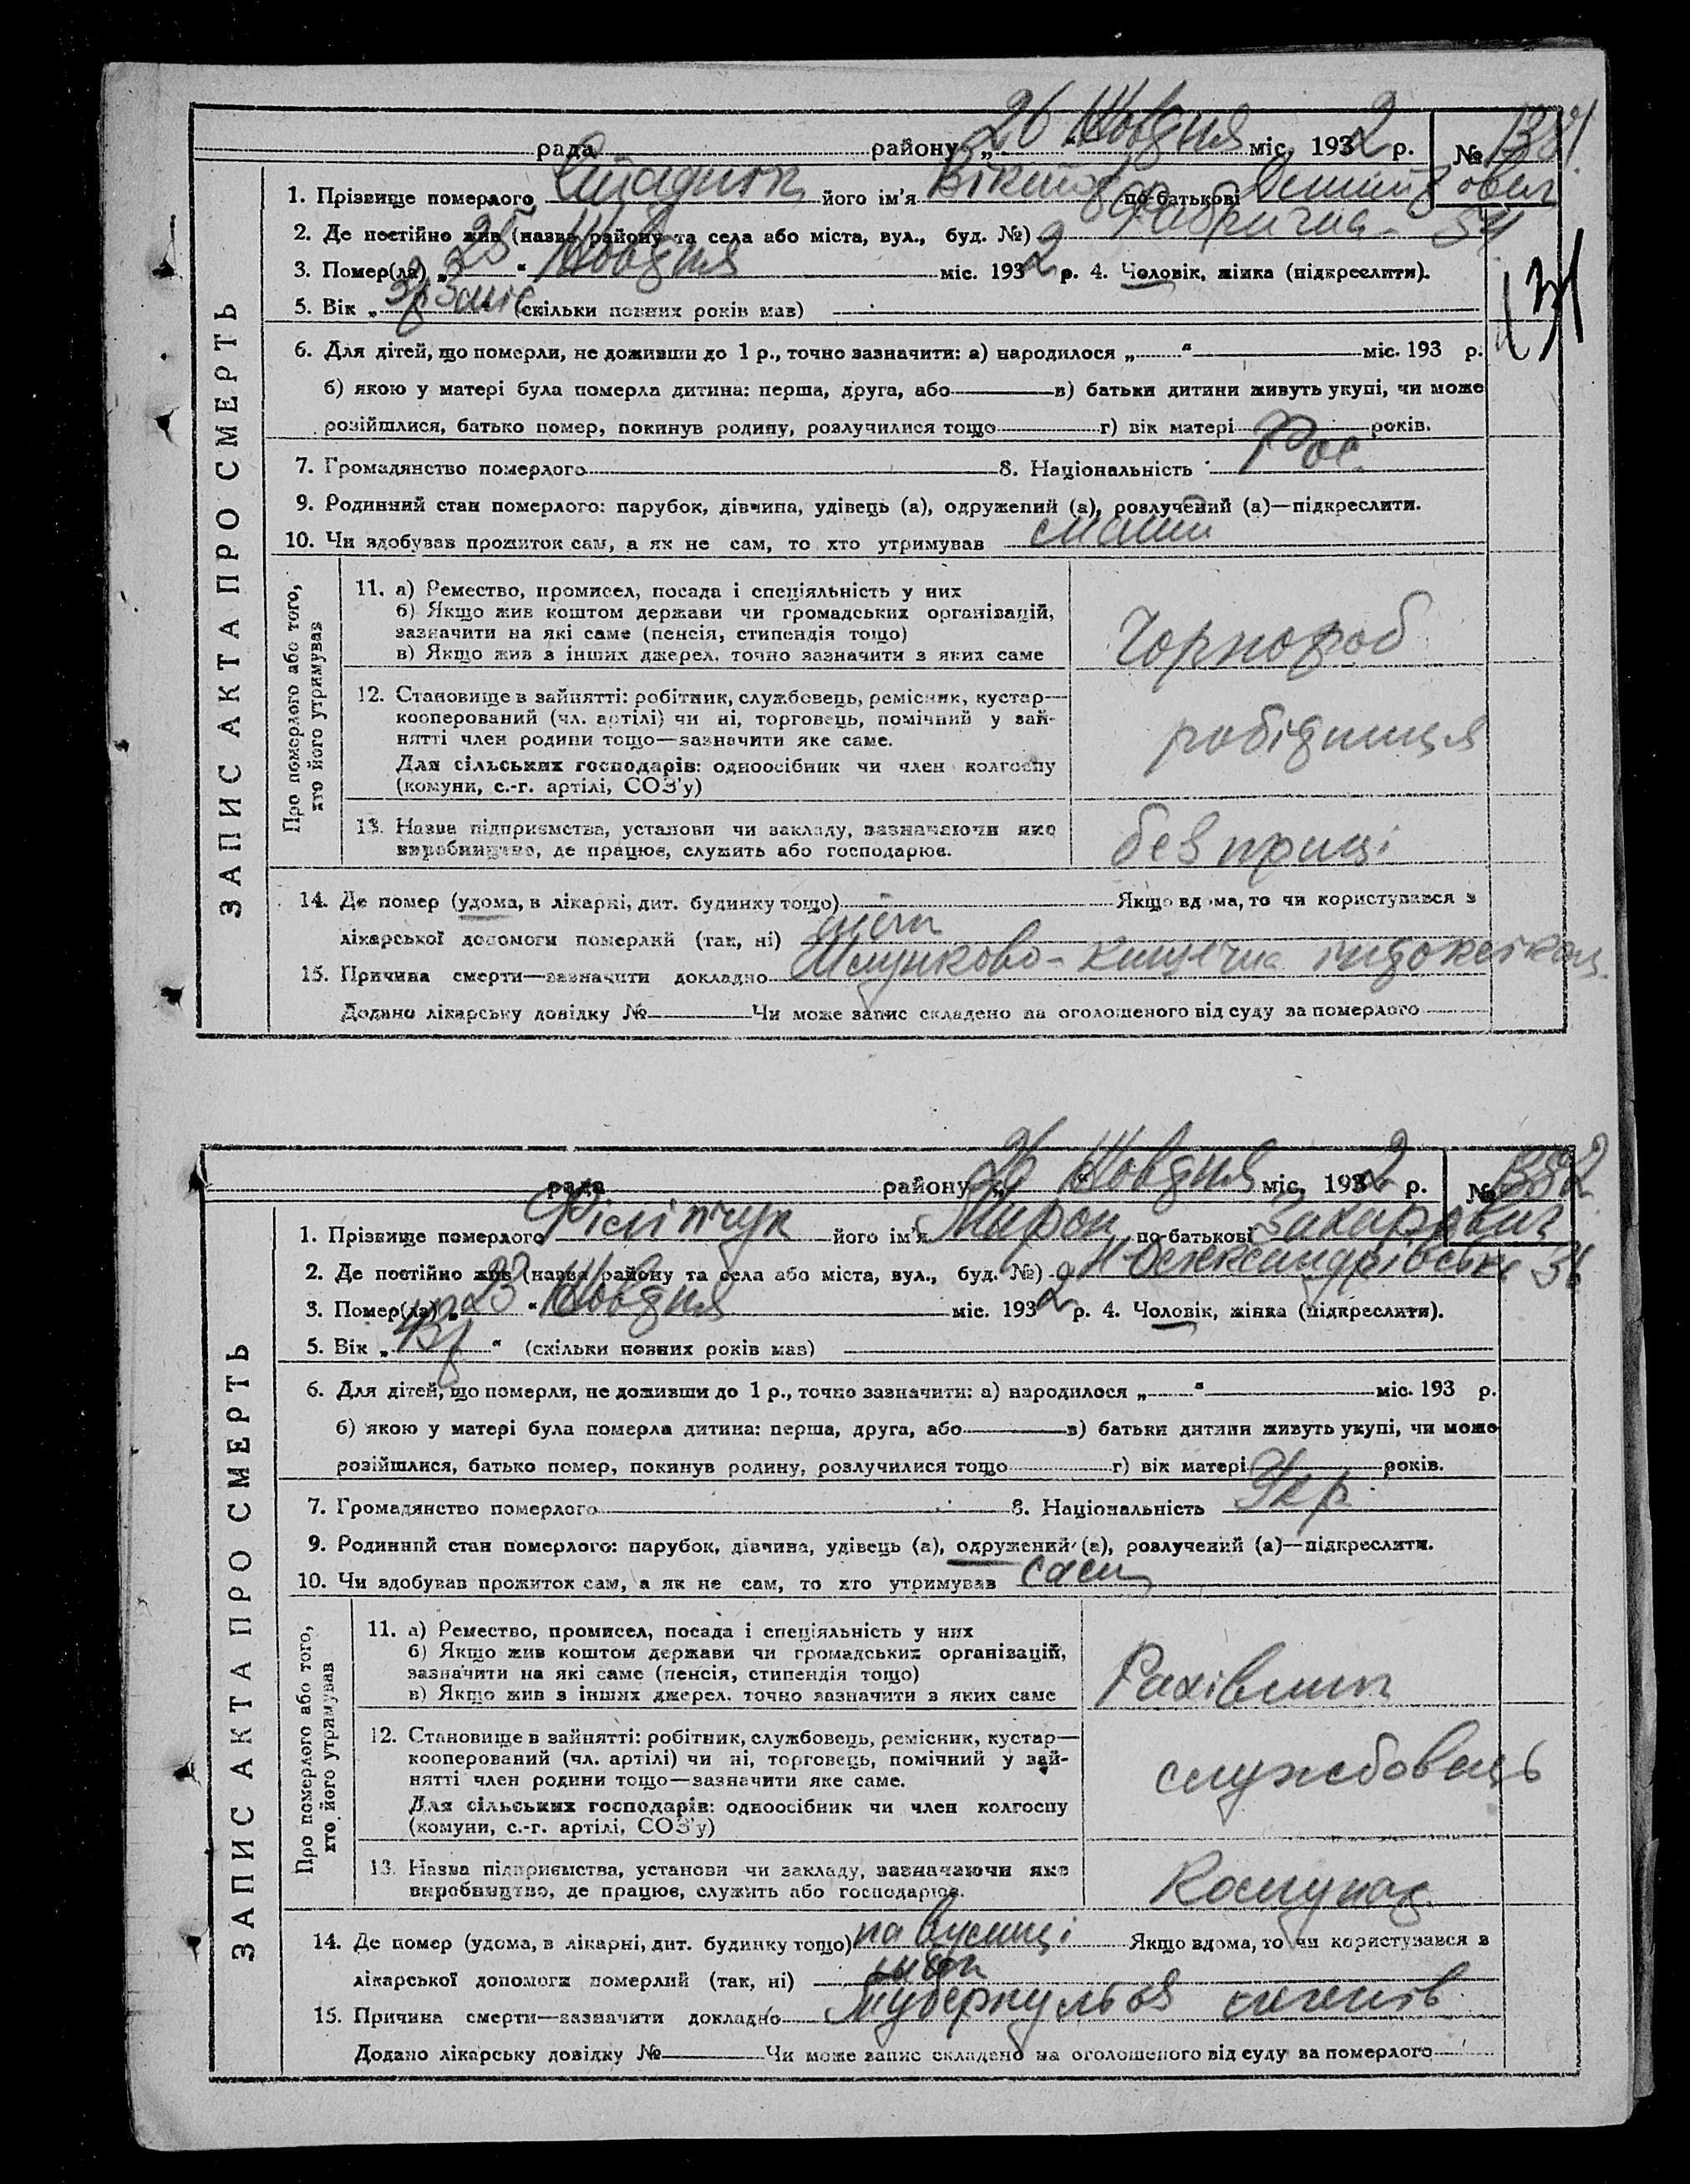 26 Жовдня
рада району „ “ міс. 1932 р. № 1381
1. Прізвище померлого Стаднюк його ім'я Віктор по-батькові Дмитрович
2. Де постійно жив (назва району та села або міста, вул., буд. №) Фабрична 54
3. Помер(ла) „25“ Жовдня міс. 1932 р. 4. Чоловік, жінка (підкреслити).
5. Вік „ “ (скільки повних років мав)
6. Для дітей, що померли, не доживши до 1 р., точно зазначити: а) народилося „ “ міс. 193 р.
б) якою у матері була померла дитина: перша, друга, або в) батьки дитини живуть укупі, чи може
розійшлися, батько помер, покинув родину, розлучилися тощо г) вік матері років.
7. Громадянство померлого 8. Національність Рос.
9. Родинний стан померлого: парубок, дівчина, удівець (а), одружений (а), розлучений (а)—підкреслити.
10. Чи здобував прожиток сам, а як не сам, то хто утримував мати
ЗАПИС АКТА ПРО СМЕРТЬ
Про померлого або того,
хто його утримував
11. а) Ремество, промисел, посада і спеціяльність у них
б) Якщо жив коштом держави чи громадських організацій,
зазначити на які саме (пенсія, стипендія тощо)
в) Якщо жив з інших джерел, точно зазначити з яких саме
Чорнороб
12. Становище в зайнятті: робітник, службовець, ремісник, кустар—
кооперований (чл. артілі) чи ні, торговець, помічний у зай-
нятті член родини тощо—зазначити яке саме.
Для сільських господарів: одноосібник чи член колгоспу
(комуни, с.-г. артілі, СОЗ'у)
робідниця
13. Назва підприємства, установи чи закладу, зазначаючи яке
виробництво, де працює, служить або господарює.
без праці
14. Де помер (удома, в лікарні, дит. будинку тощо) Якщо вдома, то чи користувався з
лікарської допомоги померлий (так, ні)
15. Причина смерти—зазначити докладно Шлунково-кишечна
Додано лікарську довідку № Чи може запис складено на оголошеного від суду за померлого
26 Жовдня
рада району „ “ міс. 1932 р. № 1382
1. Прізвище померлого Філіпчук його ім'я Мирон по-батькові Захарович
2. Де постійно жив (назва району та села або міста, вул., буд. №) Олександрівська 36
3. Помер(ла) „23“ Жовдня міс. 1932 р. 4. Чоловік, жінка (підкреслити).
5. Вік „ “ (скільки повних років мав)
6. Для дітей, що померли, не доживши до 1 р., точно зазначити: а) народилося „ “ міс. 193 р.
б) якою у матері була померла дитина: перша, друга, або в) батьки дитини живуть укупі, чи може
розійшлися, батько помер, покинув родину, розлучилися тощо г) вік матері років.
7. Громадянство померлого 8. Національність Укр.
9. Родинний стан померлого: парубок, дівчина, удівець (а), одружений (а), розлучений (а)—підкреслити.
10. Чи здобував прожиток сам, а як не сам, то хто утримував сам
ЗАПИС АКТА ПРО СМЕРТЬ
Про померлого або того,
хто його утримував
11. а) Ремество, промисел, посада і спеціяльність у них
б) Якщо жив коштом держави чи громадських організацій,
зазначити на які саме (пенсія, стипендія тощо)
в) Якщо жив з інших джерел, точно зазначити з яких саме
Рахівник
12. Становище в зайнятті: робітник, службовець, ремісник, кустар—
кооперований (чл. артілі) чи ні, торговець, помічний у зай-
нятті член родини тощо—зазначити яке саме.
Для сільських господарів: одноосібник чи член колгоспу
(комуни, с.-г. артілі, СОЗ'у)
службовець
13. Назва підприємства, установи чи закладу, зазначаючи яке
виробництво, де працює, служить або господарює.
14. Де помер (удома, в лікарні, дит. будинку тощо) на вулиці Якщо вдома, то чи користувався з
лікарської допомоги померлий (так, ні)
15. Причина смерти—зазначити докладно Туберкульоз легенів
Додано лікарську довідку № Чи може запис складено на оголошеного від суду за померлого